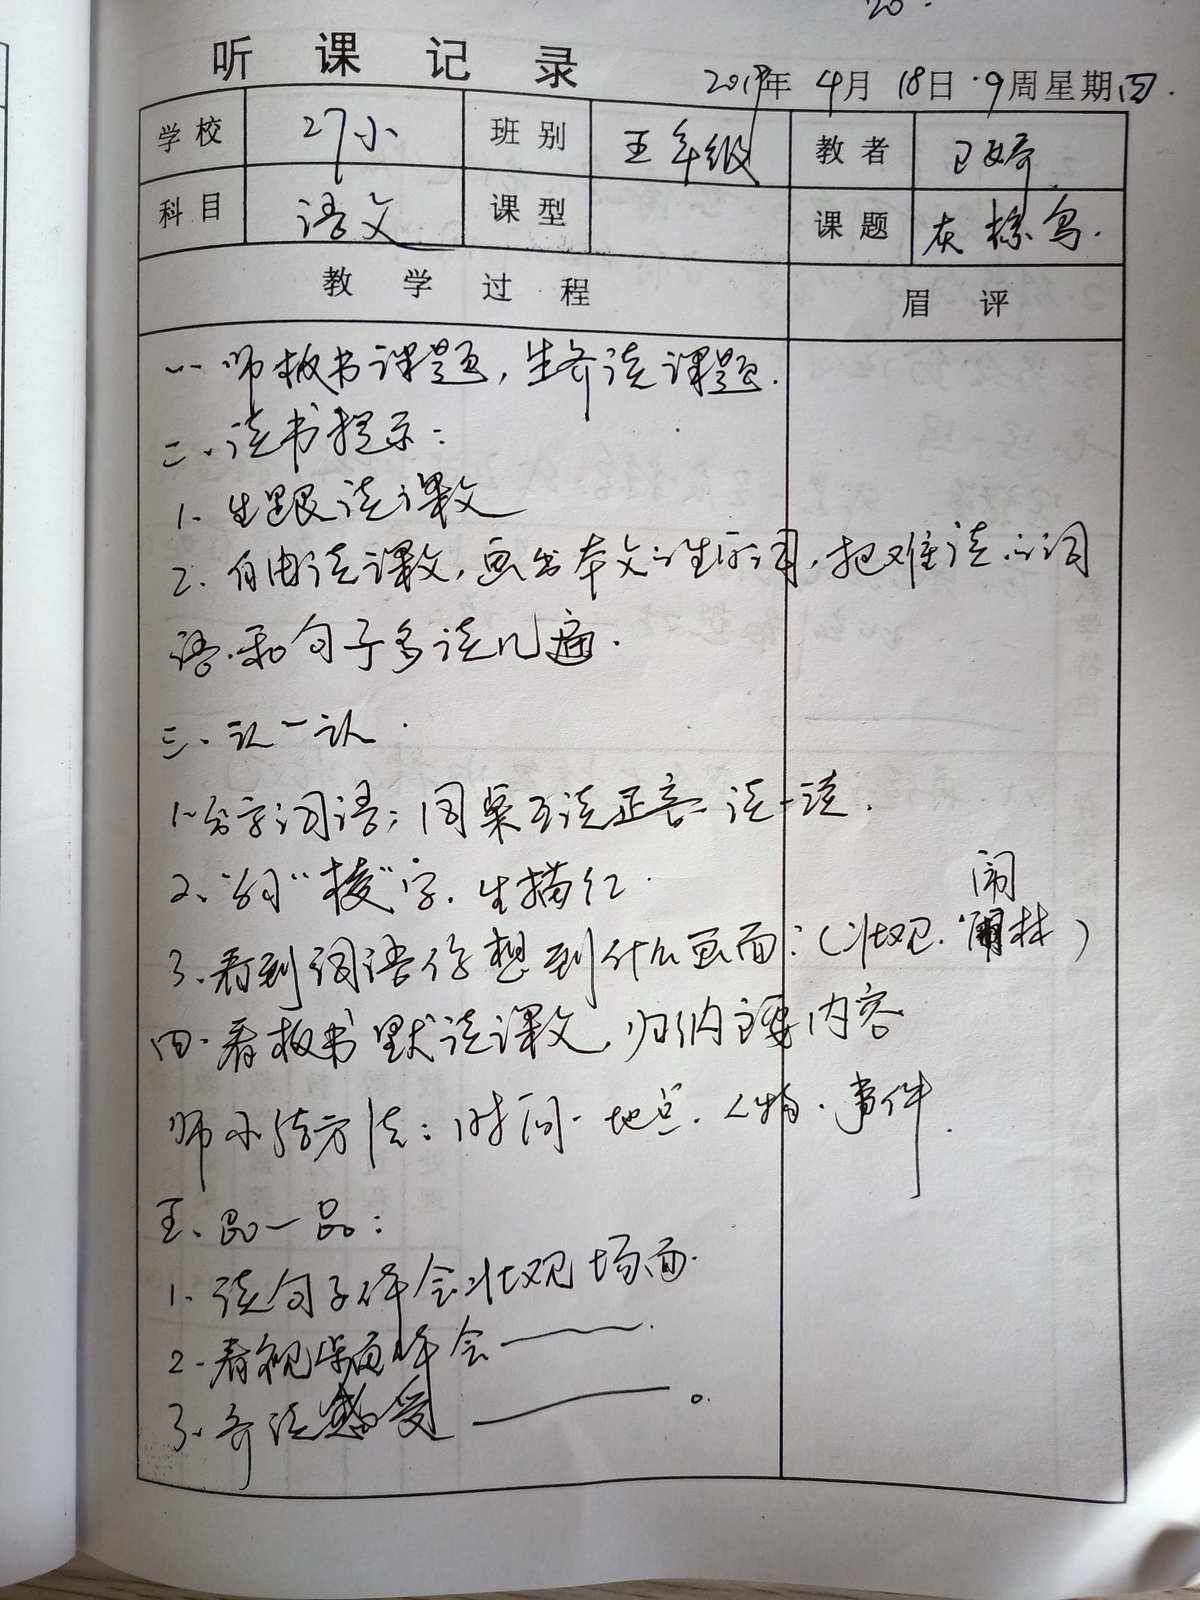 20.
听课记录
2019年 4月 18日 9周星期四.
学校 27小 班别 五年级 教者 卫婷
科目 语文 课型 课题 灰椋鸟.
教学过程 眉评
一. 师板书课题, 生齐读课题.
二. 读书提示:
1. 生跟读课文
2. 自由读课文, 画出本文的生字词, 把难读的词
语.和句子多读几遍.
三. 认一认.
1. 生字词语; 同桌互读正音 读一读.
2. "棱"字. 生描红.
闹
3. 看到词语你想到什么画面: (壮观. 闹林)
四. 看板书默读课文, 归纳主要内容
师小结方法: 时间. 地点. 人物. 事件.
五. 品一品:
1. 读句子体会壮观场面.
2. 看视频画面体会 ——.
3. 齐读感受 ——。